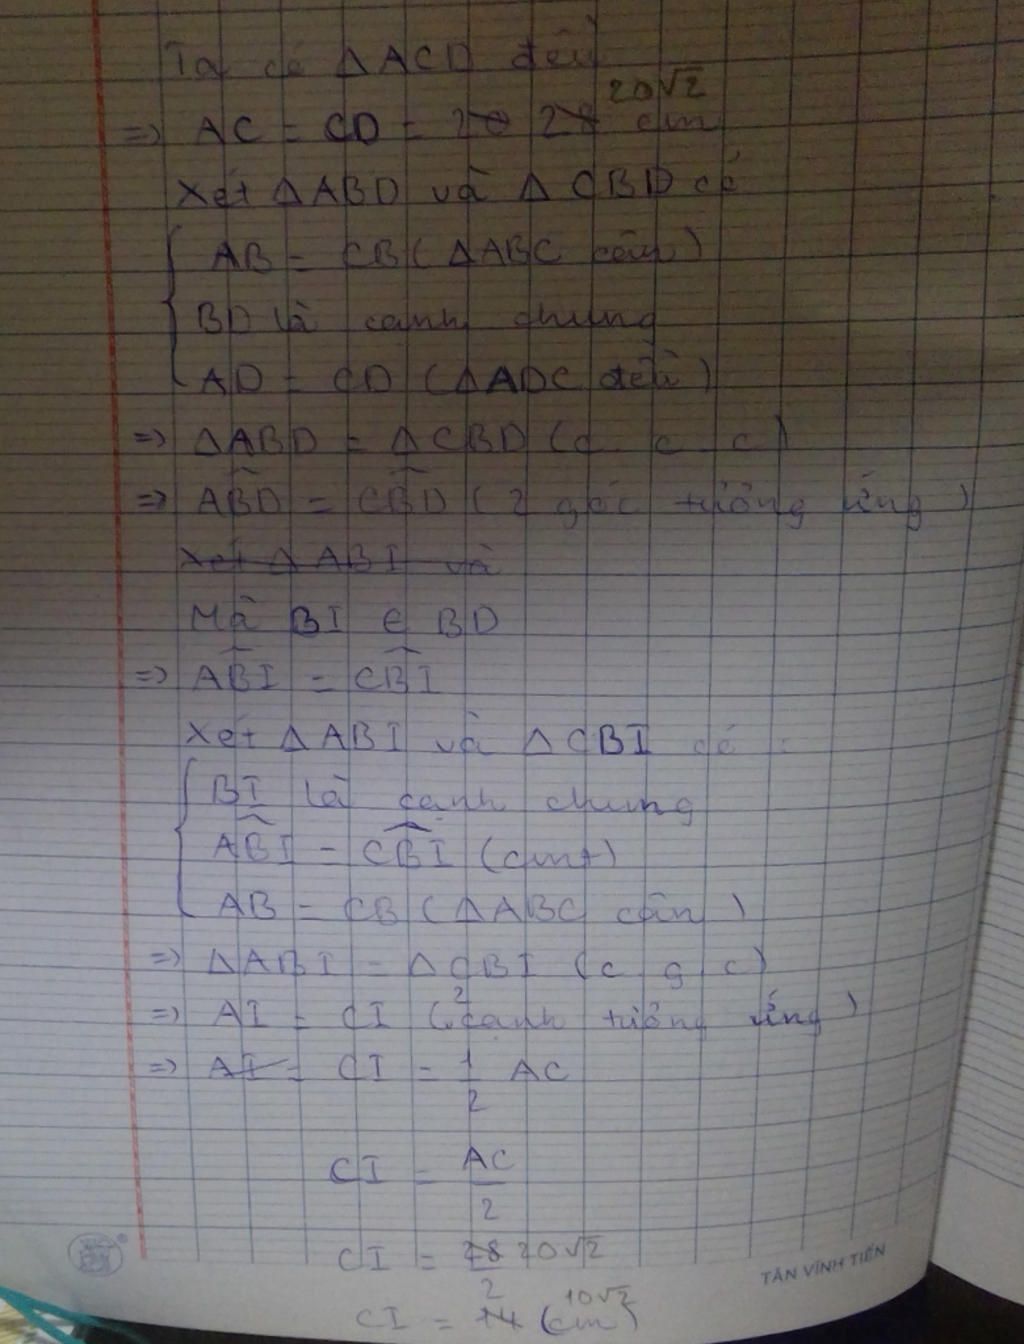 Ta có ΔACD đều
20√2
=> AC = CD = 20 28 cm
Xét ΔABD và ΔCBD có
AB = CB (ΔABC cân)
BD là cạnh chung
AD = CD (ΔADC đều)
=> ΔABD = ΔCBD (c c c)
=> ABD = CBD (2 góc tương ứng)
Xét ΔABI và
Mà BI ∈ BD
=> ABI = CBI
Xét ΔABI và ΔCBI có :
BI là cạnh chung
ABI = CBI (cmt)
AB = CB (ΔABC cân)
=> ΔABI = ΔCBI (c g c)
=> AI = CI (2 cạnh tương ứng)
=> AI = CI = 1/2 AC
CI = AC/2
CI = 28 20√2/2
10√2
CI = 14 (cm)
TÂN VĨNH TIẾN